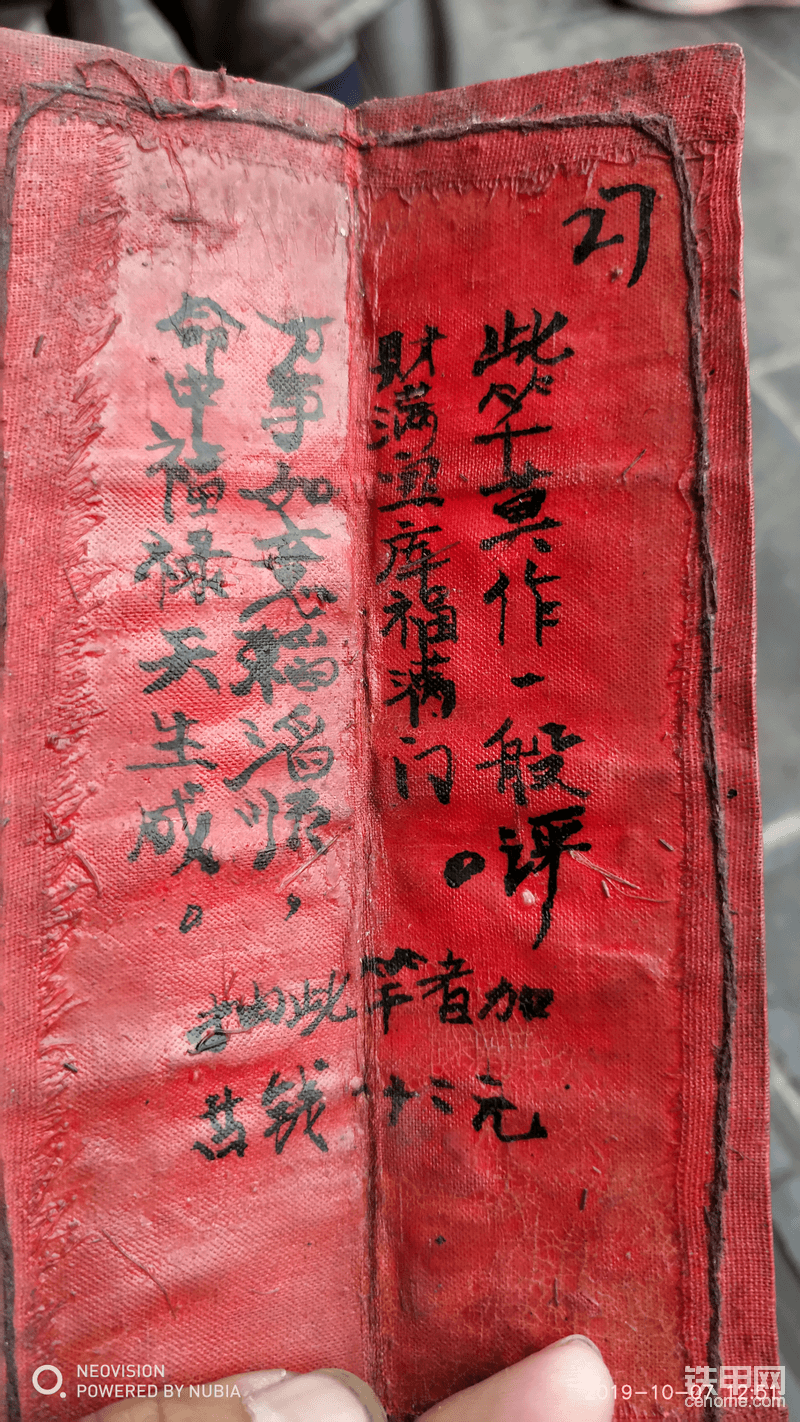 27
此签莫作一般评
財满盈库福满门。
万事如意滔顺，
命中福禄天生成。
抽此签者加
钱十二元
NEOVISION
POWERED BY NUBIA
2019-10-07 12:51
铁甲网
cehome.com